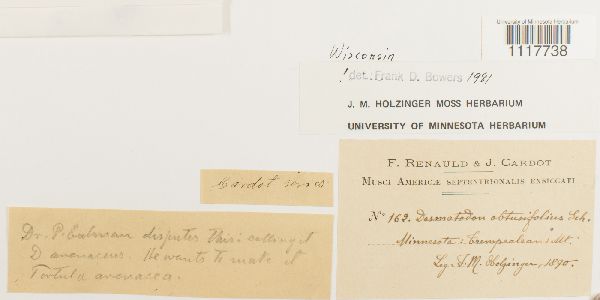 University of Minnesota Herbarium
1117738
Wisconsin
! det. Frank D. Bowers 1981
J. M. HOLZINGER MOSS HERBARIUM
UNIVERSITY OF MINNESOTA HERBARIUM
F. RENAULD & J. CARDOT
MUSCI AMERICÆ SEPTENTRIONALIS EXSICCATI
No 162. Desmatodon obtusifolius Sch.
Minnesota: Trempealeau Mt.
Leg. J. M. Holzinger, 1890.
Cardot
Dr. P. disputes this: calling it
D avenaceus. He wants to make it
Tortula avenacea.